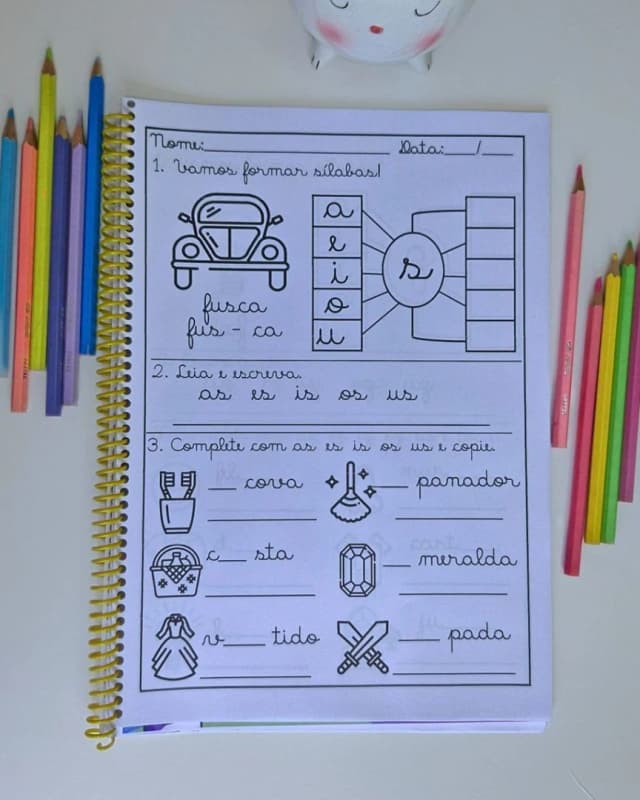 Nome:____________ Data:___/___
1. Vamos formar sílabas!
a
e
i
o
u
s
fusca
fus - ca
2. Leia e escreva.
as es is os us
3. Complete com as es is os us e copie.
__ cova
____ panador
c__ sta
__ meralda
v___ tido
____ pada